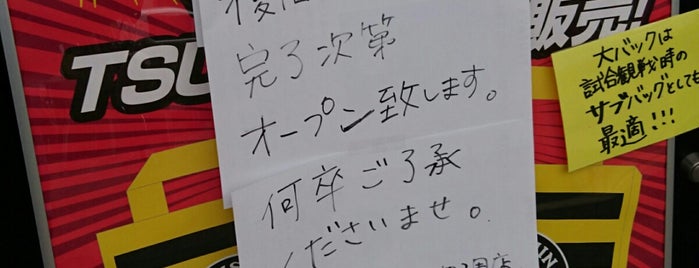 完了次第
オープン致します。
何卒ご了承
くださいませ。
TSU
販売!
大バックは
試合観戦時の
サブバッグとしても
最適!!!